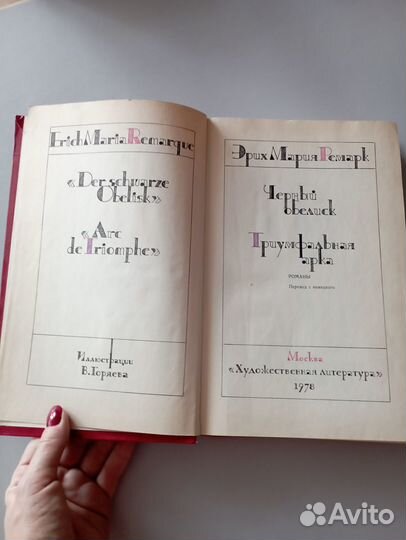 Erich Maria Remarque
«Der schwarze
Obelisk»
«Arc
de Triomphe»
Иллюстрации
В. Горяева
Эрих Мария Ремарк
Черный
обелиск
Триумфальная
арка
РОМАНЫ
Перевод с немецкого
Москва
«Художественная литература»
1978
Avito